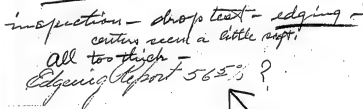 inspection - drop test - edging -
centers seem a little soft.
all too thick -
Edgeing Report 565% ?